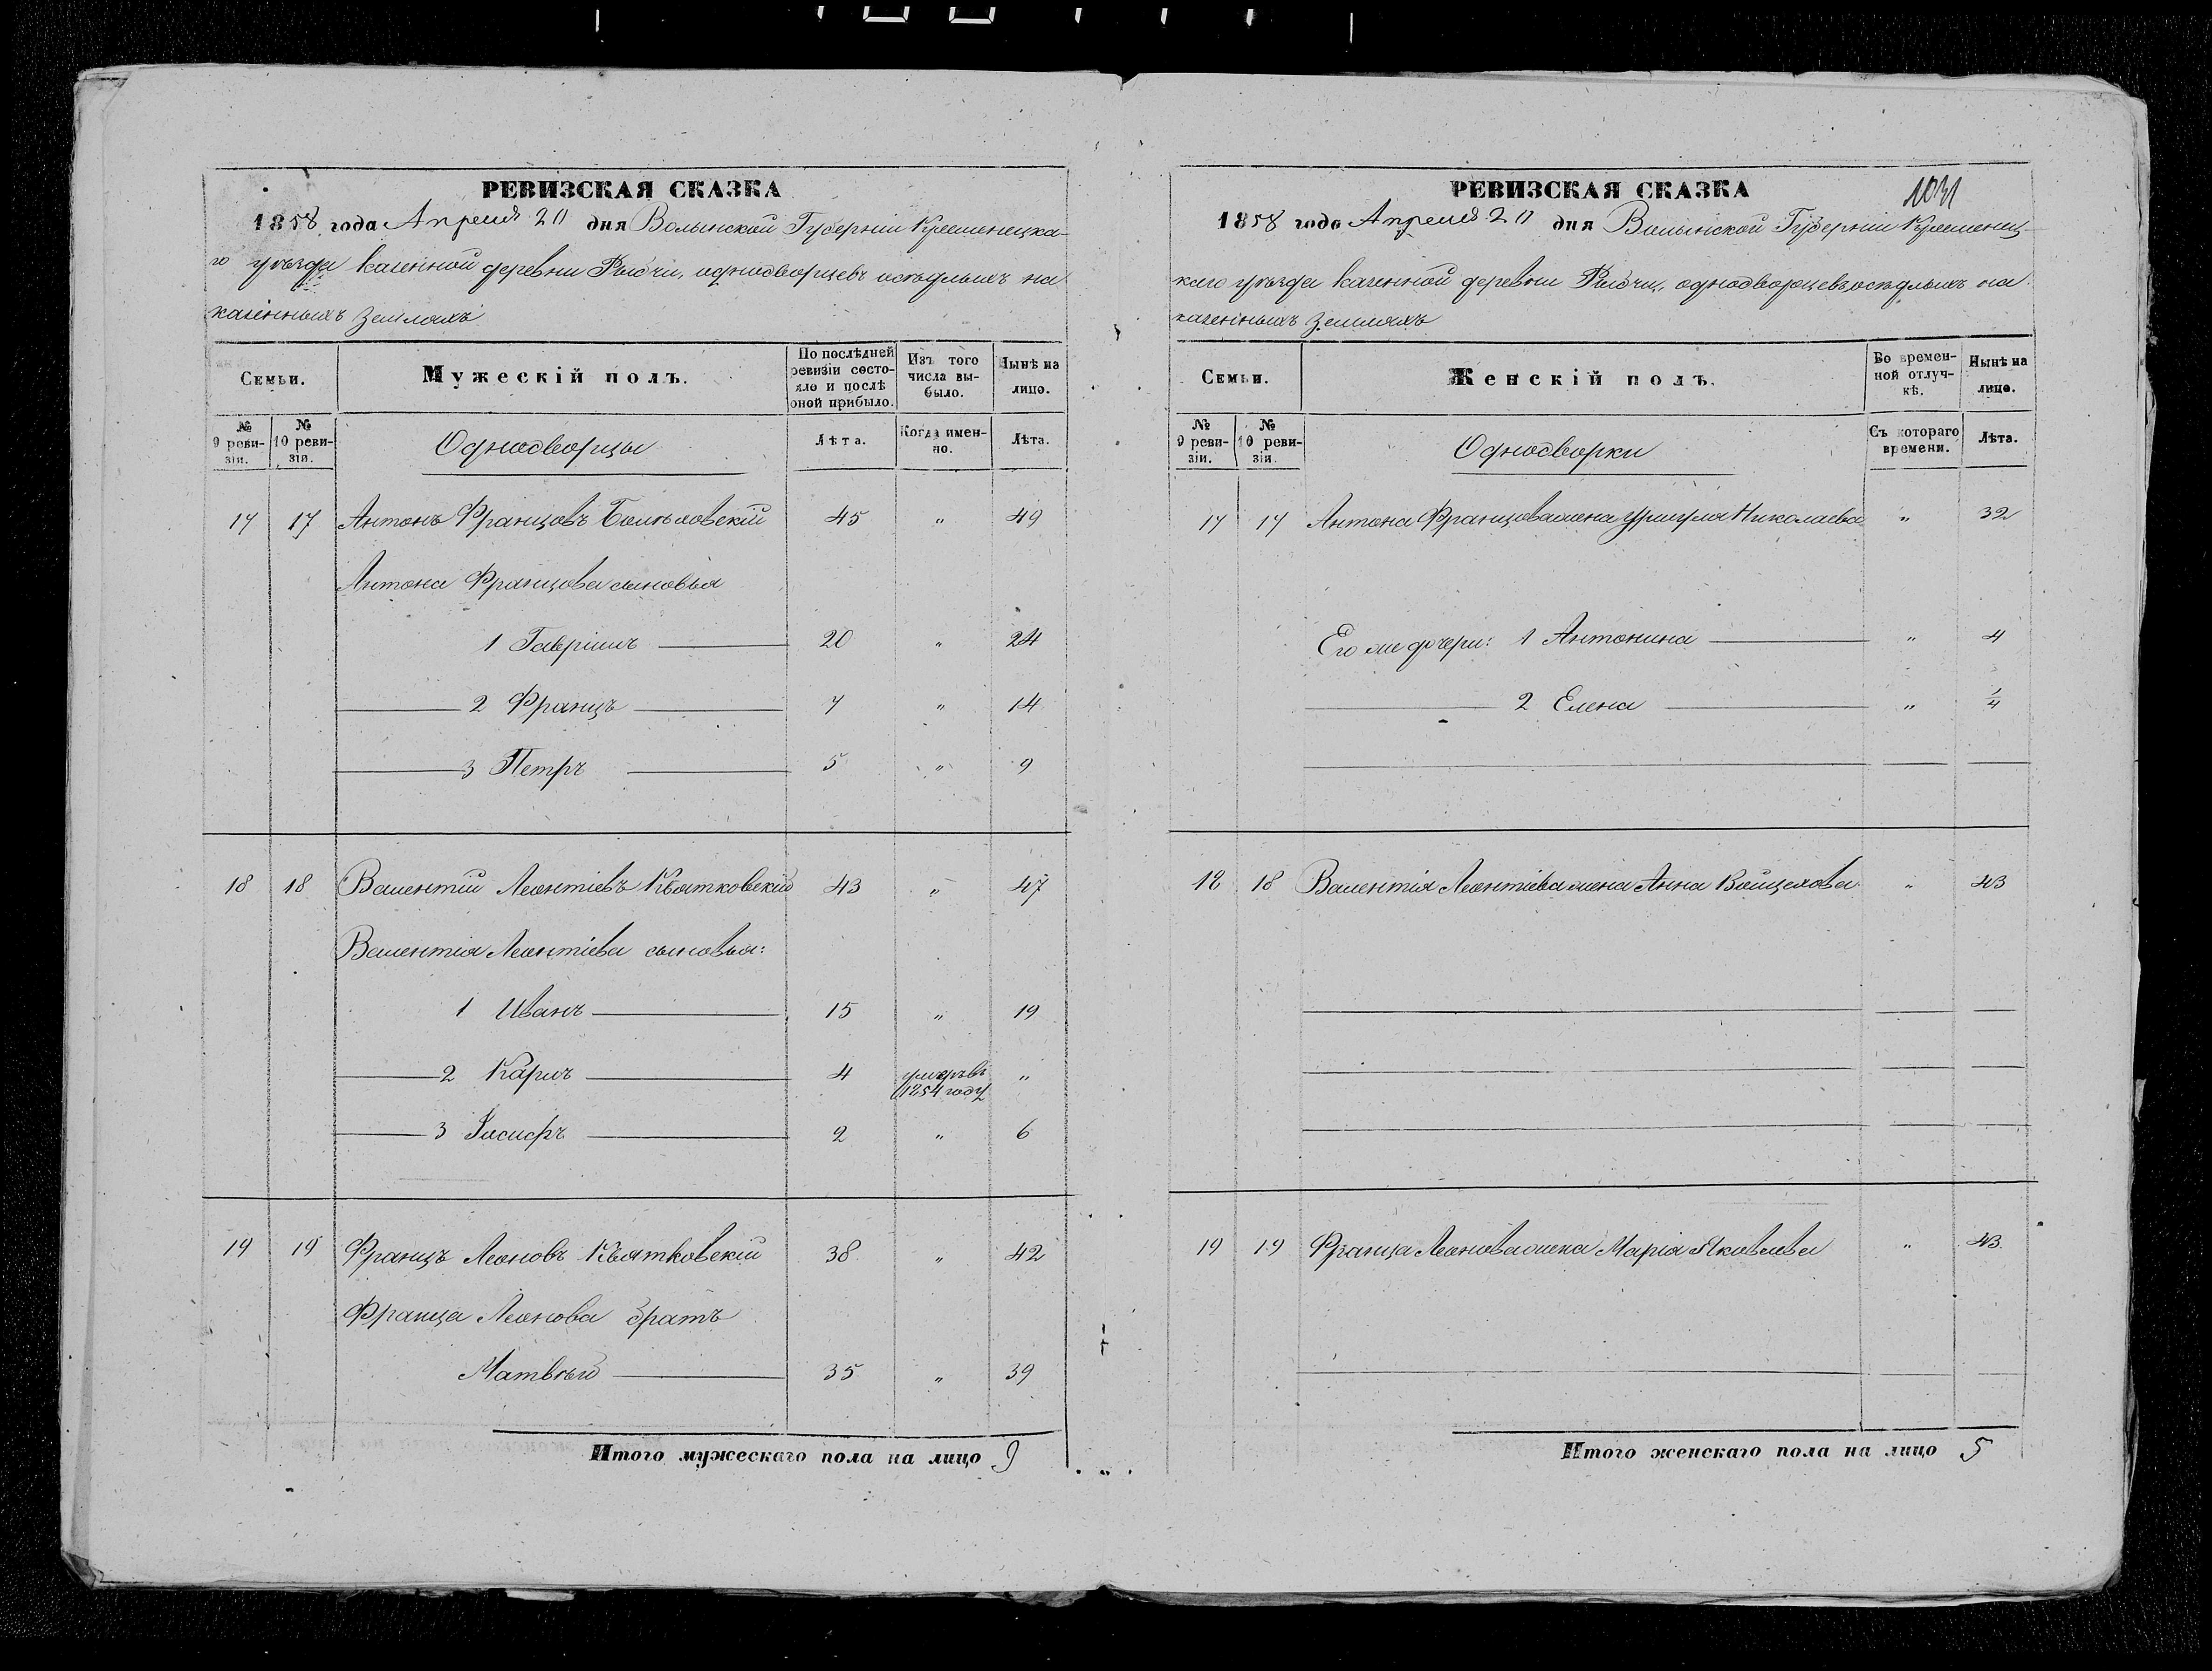 РЕВИЗСКАЯ СКАЗКА
1858 года Апреля 20 дня Волынской Губерніи Кременецка-
го уѣзда казенной деревни Рыдчи, однодворцевъ осѣдлыхъ на
казенныхъ земляхъ
Семьи. Мужескій полъ. По послѣдней ревизіи состояло и послѣ оной прибыло. Изъ того числа выбыло. Нынѣ на лицо.
№ 9 ревизіи. № 10 ревизіи. Однодворцы Лѣта. Когда именно. Лѣта.
17 17 Антонъ Францовъ 45 " 49
Антона Францова сыновья
1 Гавріилъ 20 " 24
2 Францъ 7 " 14
3 Петръ 5 " 9
18 18 Валентій Леонтіевъ Квятковскій 43 " 47
Валентія Леонтіева сыновья:
1 Иванъ 15 " 19
2 Карлъ 4 умеръ въ 1854 году "
3 Іосифъ 2 " 6
19 19 Францъ Леоновъ Квятковскій 38 " 42
Франца Леонова братъ
Матвѣй 35 " 39
Итого мужескаго пола на лицо 9
РЕВИЗСКАЯ СКАЗКА 1031
1858 года Апреля 20 дня Волынской Губерніи Кременец-
каго уѣзда казенной деревни Рыдчи, однодворцевъ осѣдлыхъ на
казенныхъ земляхъ
Семьи. Женскій полъ. Во временной отлучкѣ. Нынѣ на лицо.
№ 9 ревизіи. № 10 ревизіи. Однодворки Съ котораго времени. Лѣта.
17 17 Антона Францова жена Уршуля Николаева " 32
Его же дочери: 1 Антонина " 4
2 Елена " 1/4
18 18 Валентія Леонтіева жена Анна Войцехова " 43
19 19 Франца Леонова жена Марія Яковлева " 43
Итого женскаго пола на лицо 5